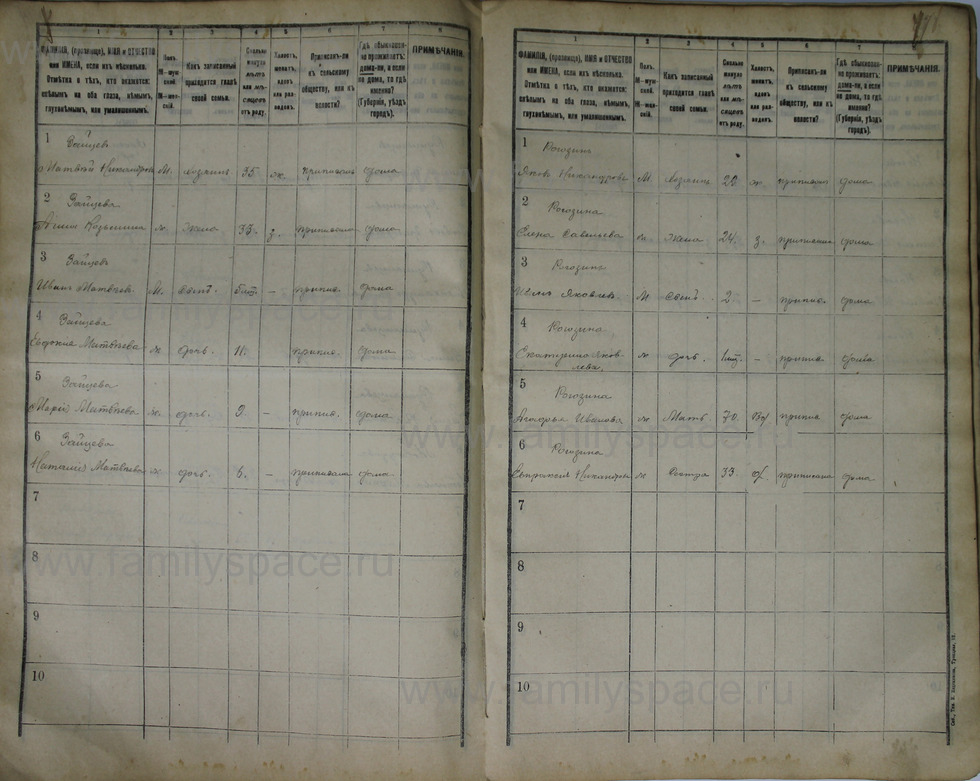 1 2 3 4 5 6 7 8
ФАМИЛІЯ, (прозвище), ИМЯ и ОТЧЕСТВО
или ИМЕНА, если ихъ нѣсколько.
Отмѣтка о тѣхъ, кто окажется:
слѣпымъ на оба глаза, нѣмымъ,
глухонѣмымъ, или умалишеннымъ.
Полъ.
М—муж-
ской.
Ж—жен-
скій.
Какъ записанный
приходится главѣ
своей семьи.
Сколько
минуло
лѣтъ
или мѣ-
сяцевъ
отъ роду.
Холостъ,
женатъ,
вдовъ
или раз-
веденъ
Приписанъ-ли
къ сельскому
обществу, или къ
волости?
Гдѣ обыкновен-
но проживаетъ:
дома-ли, а если
не дома, то гдѣ
именно?
(Губернія, уѣздъ
городъ).
ПРИМѢЧАНІЯ.
1 Зайцев
Матвѣй Никандров М. хозяинъ 35 ж. приписанъ дома
2 Зайцева
Козьмина ж. жена 33. з. приписана дома
3 Зайцев
Иванъ Матвѣев М. сынъ — припис. дома
4 Зайцева
Евдокия Матвѣева ж. дочь. 11. припис. дома
5 Зайцева
Мария Матвѣева ж. дочь. 9. — припис. дома
6 Зайцева
Наталия Матвѣева ж дочь. 6. — приписана дома
7
8
9
10
1 2 3 4 5 6 7
ФАМИЛІЯ, (прозвище), ИМЯ и ОТЧЕСТВО
или ИМЕНА, если ихъ нѣсколько.
Отмѣтка о тѣхъ, кто окажется:
слѣпымъ на оба глаза, нѣмымъ,
глухонѣмымъ, или умалишеннымъ.
Полъ.
М—муж-
ской.
Ж—жен-
скій.
Какъ записанный
приходится главѣ
своей семьи.
Сколько
минуло
лѣтъ
или мѣ-
сяцевъ
отъ роду.
Холостъ,
женатъ,
вдовъ
или раз-
веденъ
Приписанъ-ли
къ сельскому
обществу, или къ
волости?
Гдѣ обыкновен-
но проживаетъ:
дома-ли, а если
не дома, то гдѣ
именно?
(Губернія, уѣздъ
городъ).
ПРИМѢЧАНІЯ.
1 Рогозинъ
Яковъ Никандрова М. хозяинъ ж приписанъ дома
2 Рогозина
Елена Савельева ж жена 24. з. приписана дома
3 Рогозинъ
Иванъ Яковлев М сынъ. 2 — припис. дома
4 Рогозина
Екатерина Яков-
лева. ж дочь. — припис дома
5 Рогозина
Ивановa ж Мать 70. вд припис дома
6 Рогозина
Никандров ж Сестра 33. приписана дома
7
8
9
10
www.familyspace.ru
www.familyspace.ru
www.familyspace.ru
www.familyspace.ru